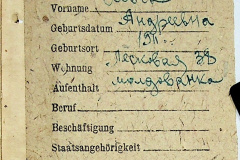 Vorname
Андреевна
Geburtsdatum 1911
Geburtsort
Wohnung Песковая 33
Aufenthalt молдованка
Beruf
Beschäftigung
Staatsangehörigkeit